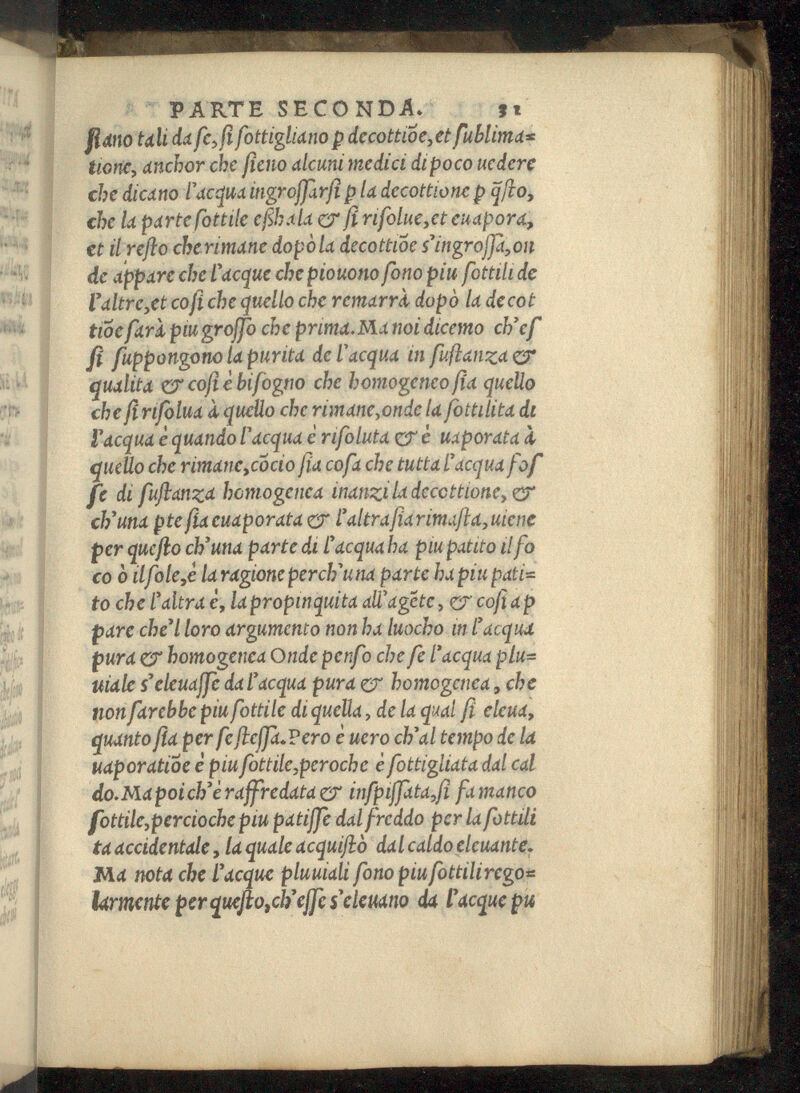 PARTE SECONDA. 31
ſiano tali da ſe, ſi ſottigliano p decottiõe, et ſublima=
tione, anchor che ſieno alcuni medici di poco uedere
che dicano l'acqua ingroſſarſi p la decottione p q̃ſto,
che la parte ſottile eßhala & ſi riſolue, et euapora,
et il reſto che rimane dopò la decottiõe s'ingroſſa, on
de appare che l'acque che piouono ſono piu ſottili de
l'altre, et coſi che quello che remarrà dopò la decot
tiõe ſarà piu groſſo che prima. Ma noi dicemo ch'eſ
ſi ſuppongono la purita de l'acqua in ſuſtanza &
qualita & coſi è biſogno che homogeneo ſia quello
che ſi riſolua à quello che rimane, onde la ſottilita di
l'acqua è quando l'acqua è riſoluta & è uaporata à
quello che rimane, cõcio ſia coſa che tutta l'acqua foſ
ſe di ſuſtanza homogenea inanzi la decottione, &
ch'una pte ſia euaporata & l'altra ſia rimaſta, uiene
per queſto ch'una parte di l'acqua ha piu patito il fo
co ò il ſole, è la ragione perch'una parte ha piu pati=
to che l'altra è, la propinquita all'agẽte, & coſi ap
pare che'l loro argumento non ha luocho in l'acqua
pura & homogenea Onde penſo che ſe l'acqua plu=
uiale s'eleuaſſe da l'acqua pura & homogenea, che
non ſarebbe piu ſottile di quella, de la qual ſi eleua,
quanto ſia per ſe ſteſſa. Pero è uero ch'al tempo de la
uaporatiõe è piu ſottile, peroche è ſottigliata dal cal
do. Ma poi ch'è raffredata & inſpiſſata, ſi fa manco
ſottile, percioche piu patiſſe dal freddo per la ſottili
ta accidentale, la quale acquiſtò dal caldo eleuante.
Ma nota che l'acque pluuiali ſono piu ſottili rego=
larmente per queſto, ch'eſſe s'eleuano da l'acque pu